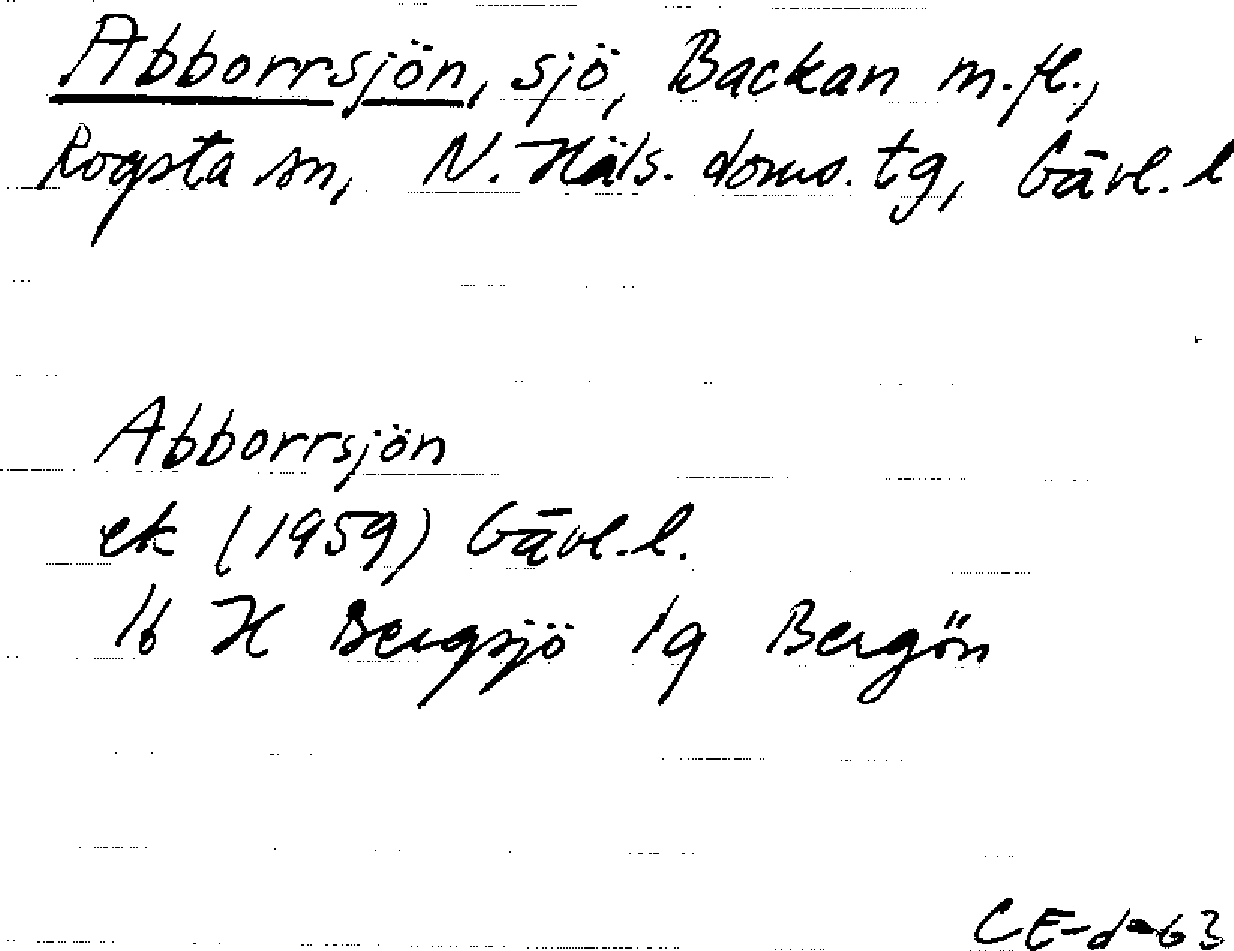 Abborrsjön, sjö, Backan m.fl.,
Rogsta sn, N. Häls. doms. tg, Gävl. l
Abborrsjön
ek (1959) Gävl. l.
16 H Bergsjö 1g Bergön
CE-d-63